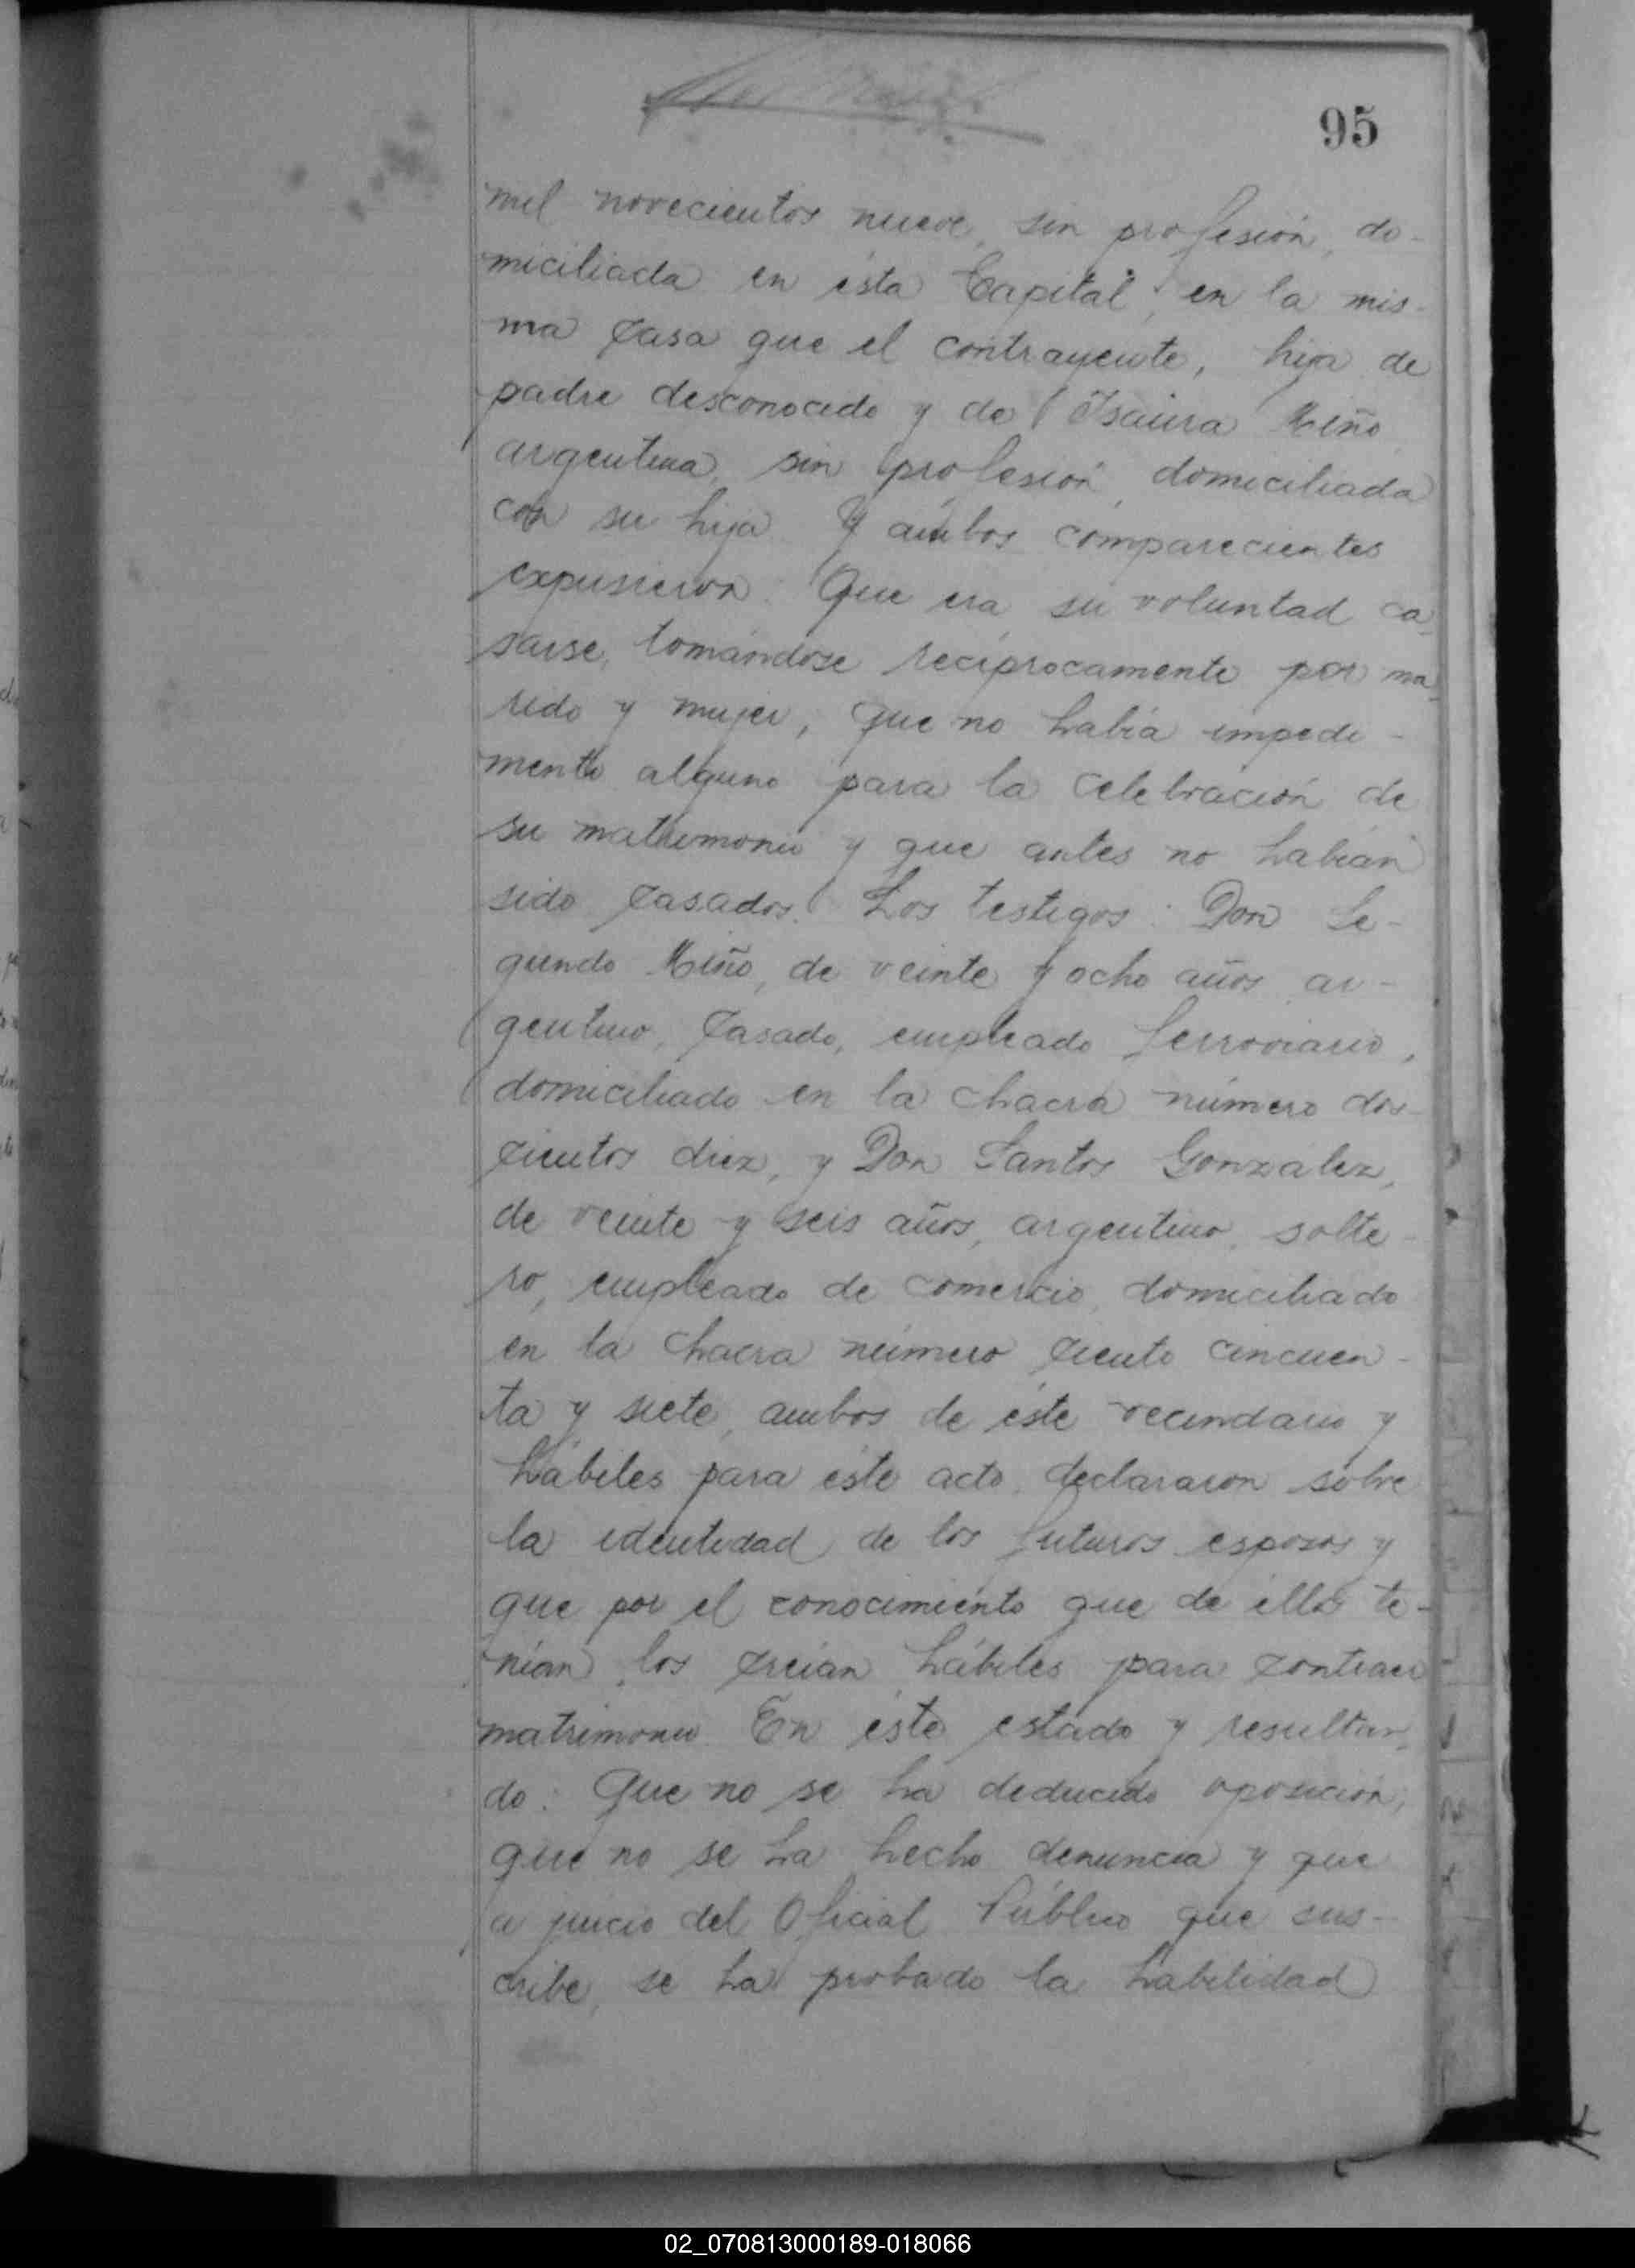 95
mil novecientos nueve, sin profesión, do-
miciliada en ésta Capital, en la mis-
ma casa que el contrayente, hija de
padre desconocido y de Isaura Miño
argentina, sin profesión, domiciliada
con su hija. Y ambos comparecientes
expusieron: Que era su voluntad ca-
sarse, tomándose recíprocamente por ma-
rido y mujer, que no había impedi-
mento alguno para la celebración de
su matrimonio y que antes no habían
sido casados. Los testigos: Don Se-
gundo Miño, de veinte y ocho años, ar-
gentino, casado, empleado ferroviario,
domiciliado en la chacra número dos-
cientos diez, y Don Santos Gonzalez,
de veinte y seis años, argentino, solte-
ro, empleado de comercio, domiciliado
en la chacra número ciento cincuen-
ta y siete, ambos de éste vecindario y
hábiles para éste acto, declararon sobre
la identidad de los futuros esposos y
que por el conocimiento que de ellos te-
nían, los creían hábiles para contraer
matrimonio. En éste estado y resultan-
do: Que no se ha deducido oposición,
que no se ha hecho denuncia y que
a juicio del Oficial Público que sus-
cribe, se ha probado la habilidad
02_070813000189-018066